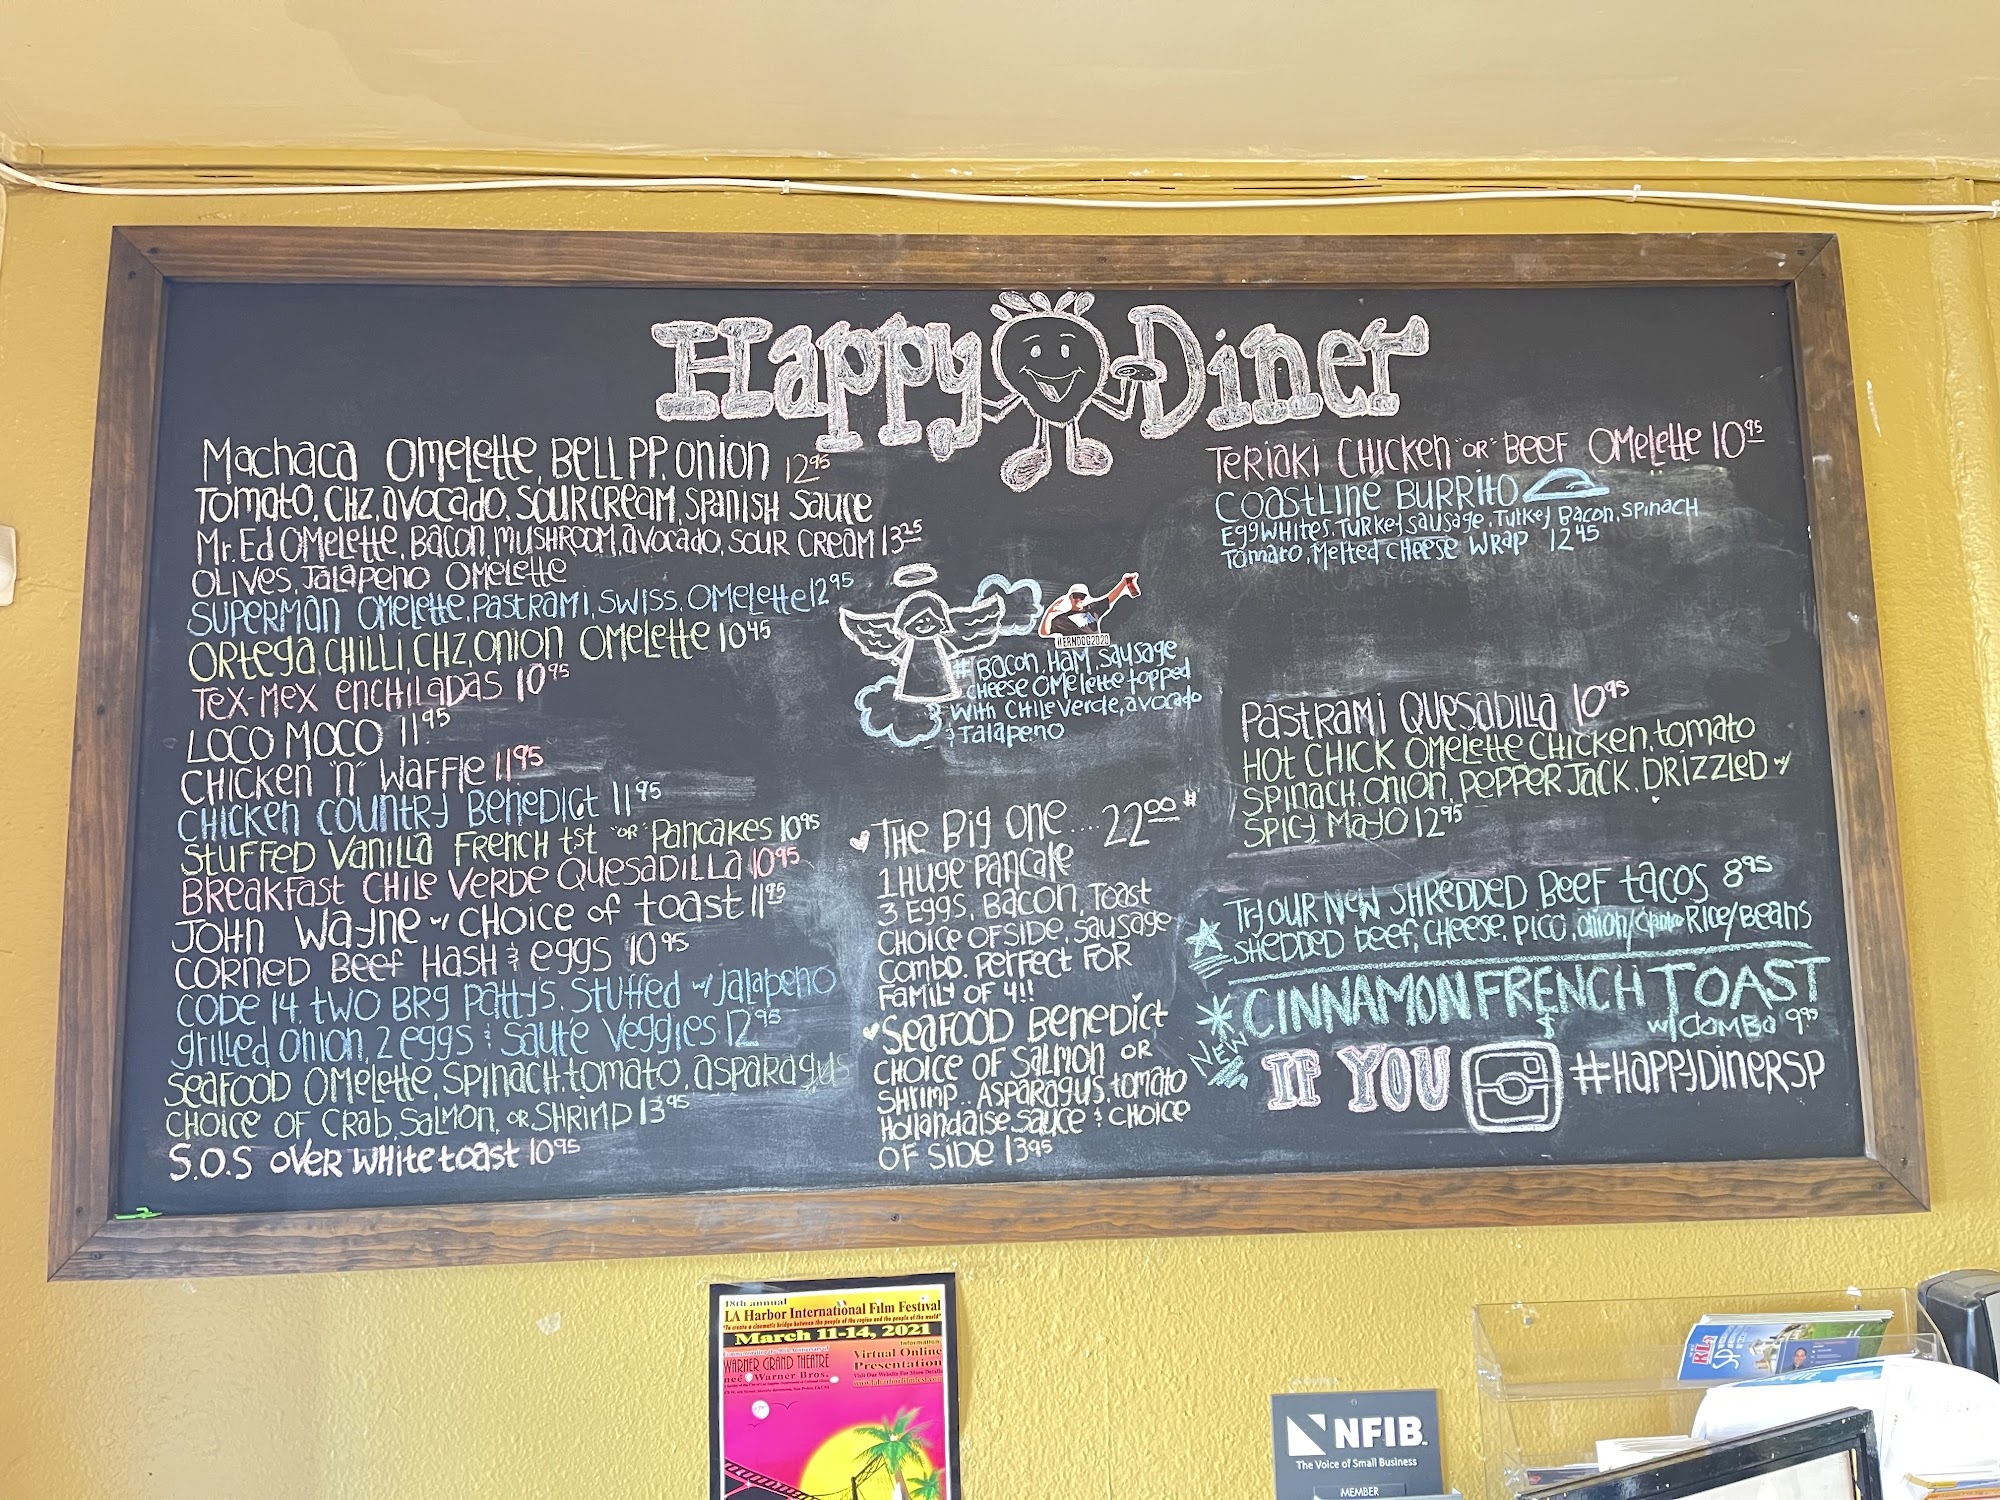 Happy Diner
Machaca Omelette, Bell PP, Onion 12.95
Tomato, CHZ, avocado, sour cream, spanish sauce
Mr. Ed Omelette, Bacon, mushroom, avocado, sour cream 13.25
Olives, Jalapeno Omelette
Superman Omelette, Pastrami, Swiss, Omelette 12.95
Ortega, Chilli, CHZ, onion Omelette 10.45
Tex-Mex enchiladas 10.95
Loco Moco 11.95
Chicken "n" Waffle 11.95
Chicken Country Benedict 11.95
Stuffed Vanilla French tst "or" Pancakes 10.95
Breakfast Chile Verde Quesadilla 10.95
John Wayne w/ choice of toast 11.95
Corned Beef Hash & eggs 10.95
Code 14, two BRG Patty's, Stuffed w/ Jalapeno
grilled onion, 2 eggs & Saute Veggies 12.95
Seafood Omelette, spinach, tomato, asparagus
choice of Crab, Salmon, or Shrimp 13.95
S.O.S over white toast 10.95
HERNDOG2020
# Bacon, Ham, Sausage
cheese Omelette topped
with Chile Verde, avocado
& Jalapeno
The Big One .... 22.00
1 Huge Pancake
3 Eggs, Bacon, Toast
choice of side, sausage
combo. Perfect for
family of 4!!
Seafood Benedict
choice of salmon or
shrimp.. Asparagus, tomato
Hollandaise sauce & choice
of side 13.95
Teriaki Chicken "or" Beef Omelette 10.95
Coastline Burrito
Eggwhites, Turkey sausage, Turkey Bacon, spinach
Tomato, Melted cheese wrap 12.45
Pastrami Quesadilla 10.95
Hot Chick Omelette Chicken, tomato
spinach, onion, pepper jack, drizzled w/
spicy mayo 12.95
Try our new shredded beef tacos 8.95
shedded beef, cheese, pico, onion/cilantro Rice/Beans
New
Cinnamon French Toast
w/ combo 9.95
If you #HappyDinerSP
18th annual
LA Harbor International Film Festival
"To create a cinematic bridge between the people of the region and the people of the world"
March 11-14, 2021
WARNER GRAND THEATRE
neé Warner Bros.
Information:
Virtual Online
Presentation
Visit Our Website For More Details
NFIB
The Voice of Small Business
MEMBER